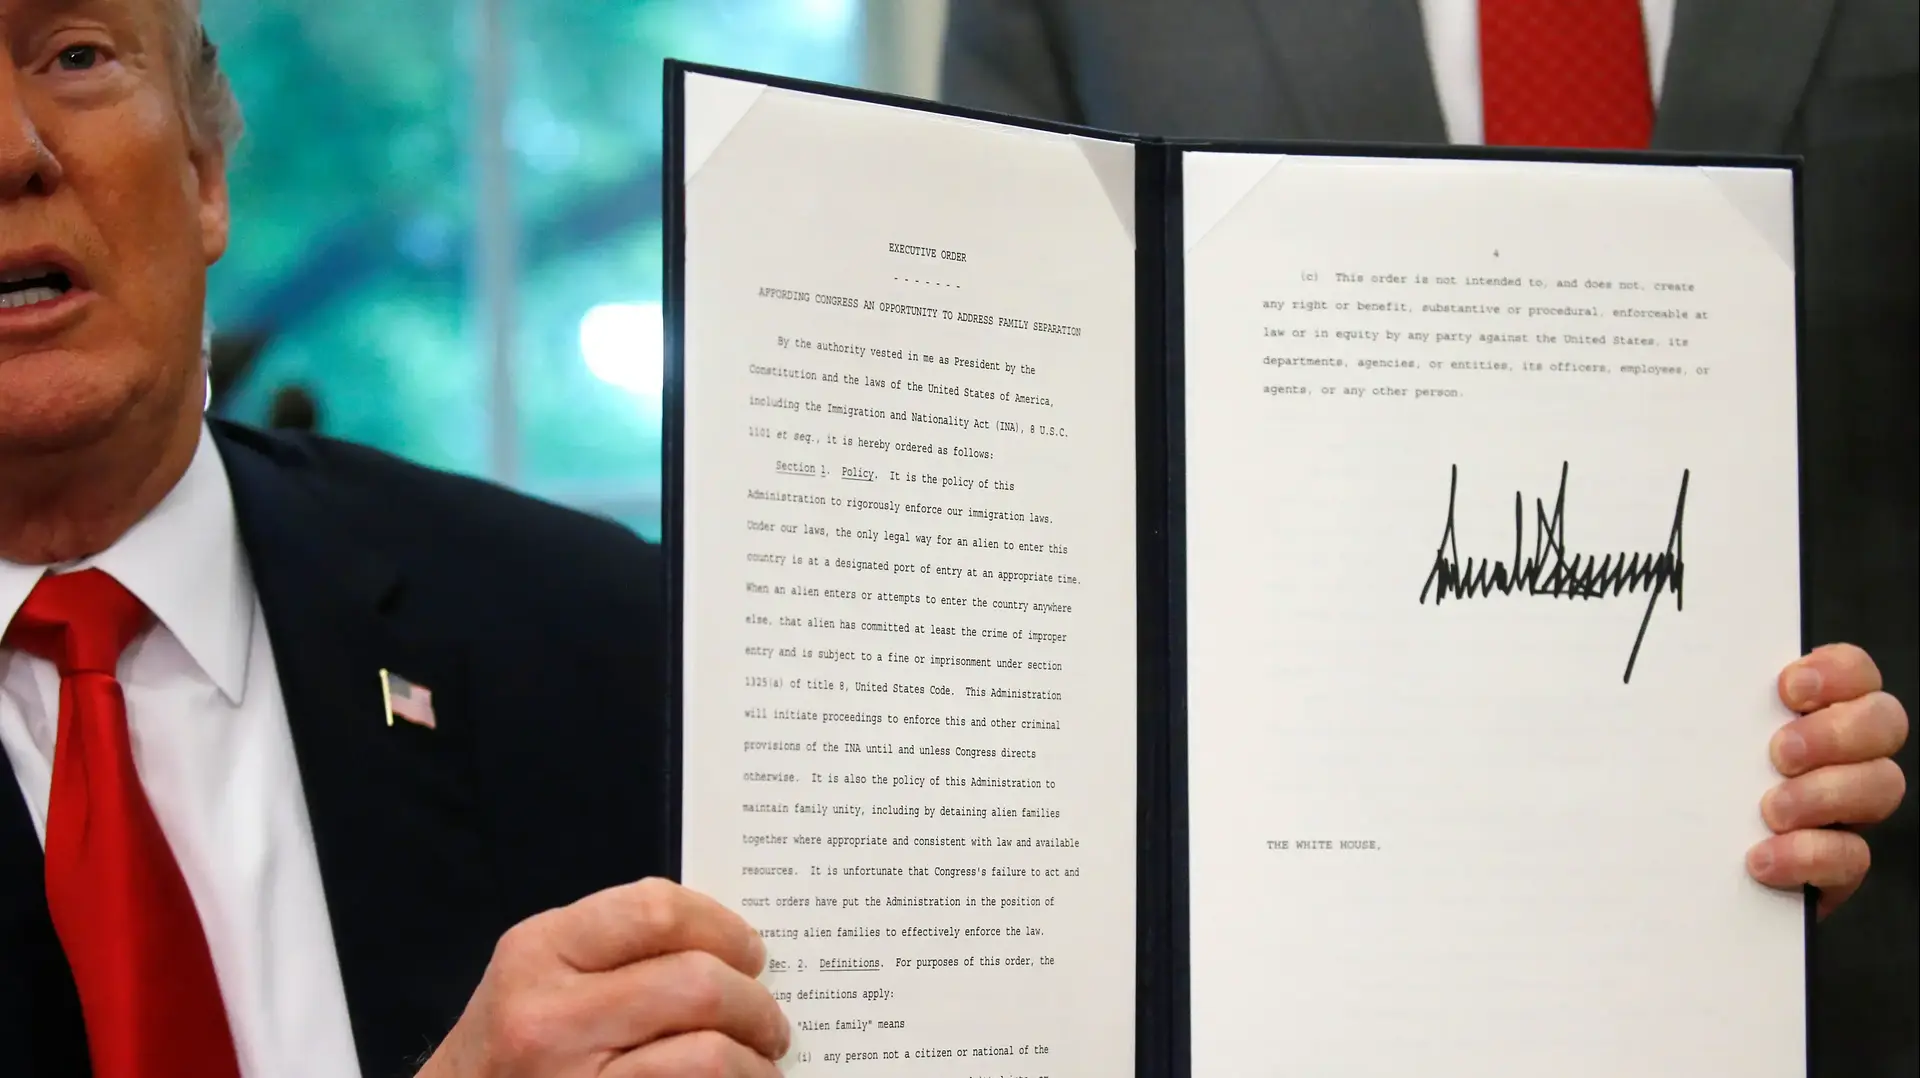 EXECUTIVE ORDER
- - - - - - -
AFFORDING CONGRESS AN OPPORTUNITY TO ADDRESS FAMILY SEPARATION
By the authority vested in me as President by the
Constitution and the laws of the United States of America,
including the Immigration and Nationality Act (INA), 8 U.S.C.
1101 et seq., it is hereby ordered as follows:
Section 1. Policy. It is the policy of this
Administration to rigorously enforce our immigration laws.
Under our laws, the only legal way for an alien to enter this
country is at a designated port of entry at an appropriate time.
When an alien enters or attempts to enter the country anywhere
else, that alien has committed at least the crime of improper
entry and is subject to a fine or imprisonment under section
1325(a) of title 8, United States Code. This Administration
will initiate proceedings to enforce this and other criminal
provisions of the INA until and unless Congress directs
otherwise. It is also the policy of this Administration to
maintain family unity, including by detaining alien families
together where appropriate and consistent with law and available
resources. It is unfortunate that Congress's failure to act and
court orders have put the Administration in the position of
arating alien families to effectively enforce the law.
Sec. 2. Definitions. For purposes of this order, the
ing definitions apply:
"Alien family" means
(i) any person not a citizen or national of the
4
(c) This order is not intended to, and does not, create
any right or benefit, substantive or procedural, enforceable at
law or in equity by any party against the United States, its
departments, agencies, or entities, its officers, employees, or
agents, or any other person.
THE WHITE HOUSE,